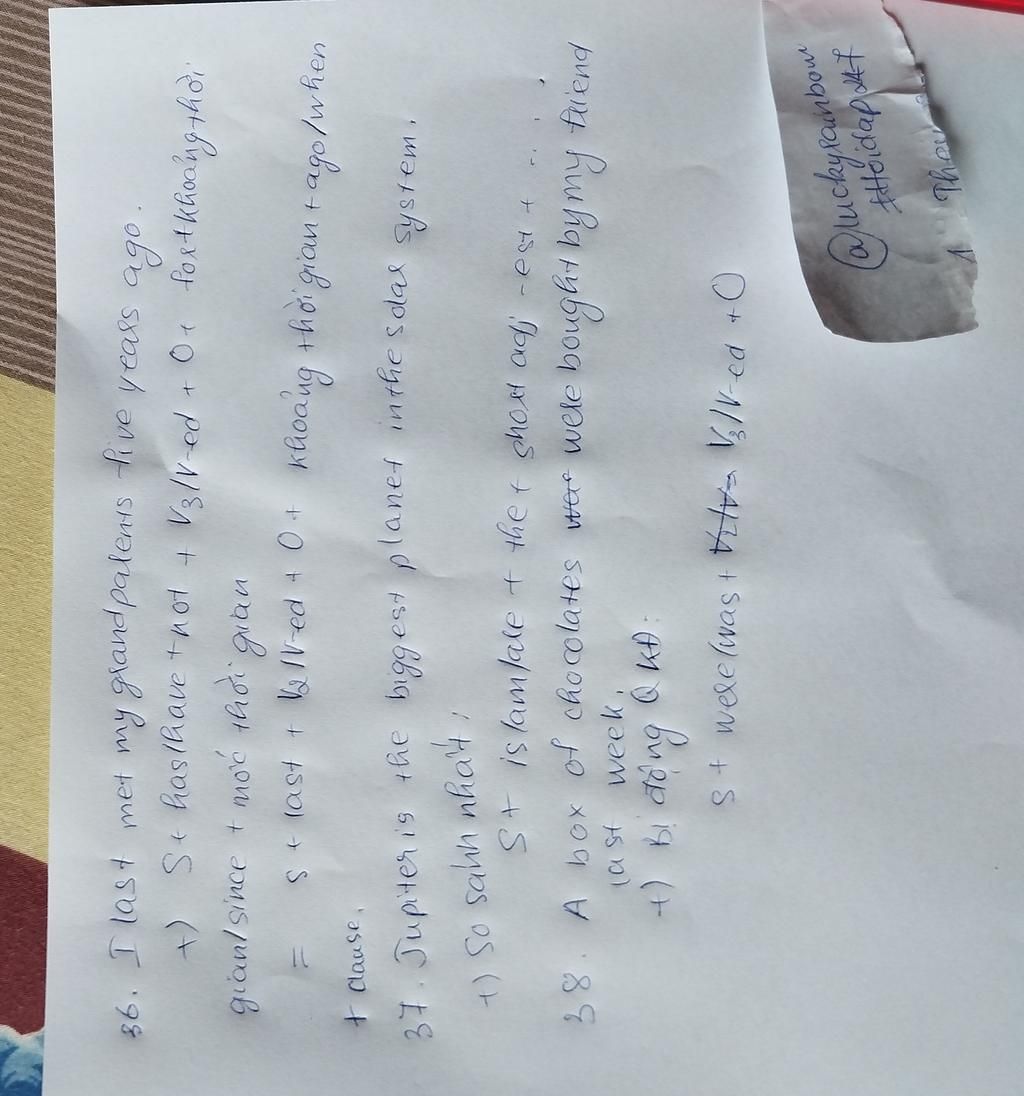 36. I last met my grandparents five years ago.
+) S + has/have + not + V3/V-ed + O + for + khoảng thời
gian/since + mốc thời gian
= S + last + V2/V-ed + O + khoảng thời gian + ago/when
+ clause.
37. Jupiter is the biggest planet in the solar system.
+) So sánh nhất:
S + is/am/are + the + short adj - est + ...
38. A box of chocolates were bought by my friend
last week.
+) Bị động QKĐ:
S + were/was + V3/V-ed + O
@luckyrainbow
#Hoidap247